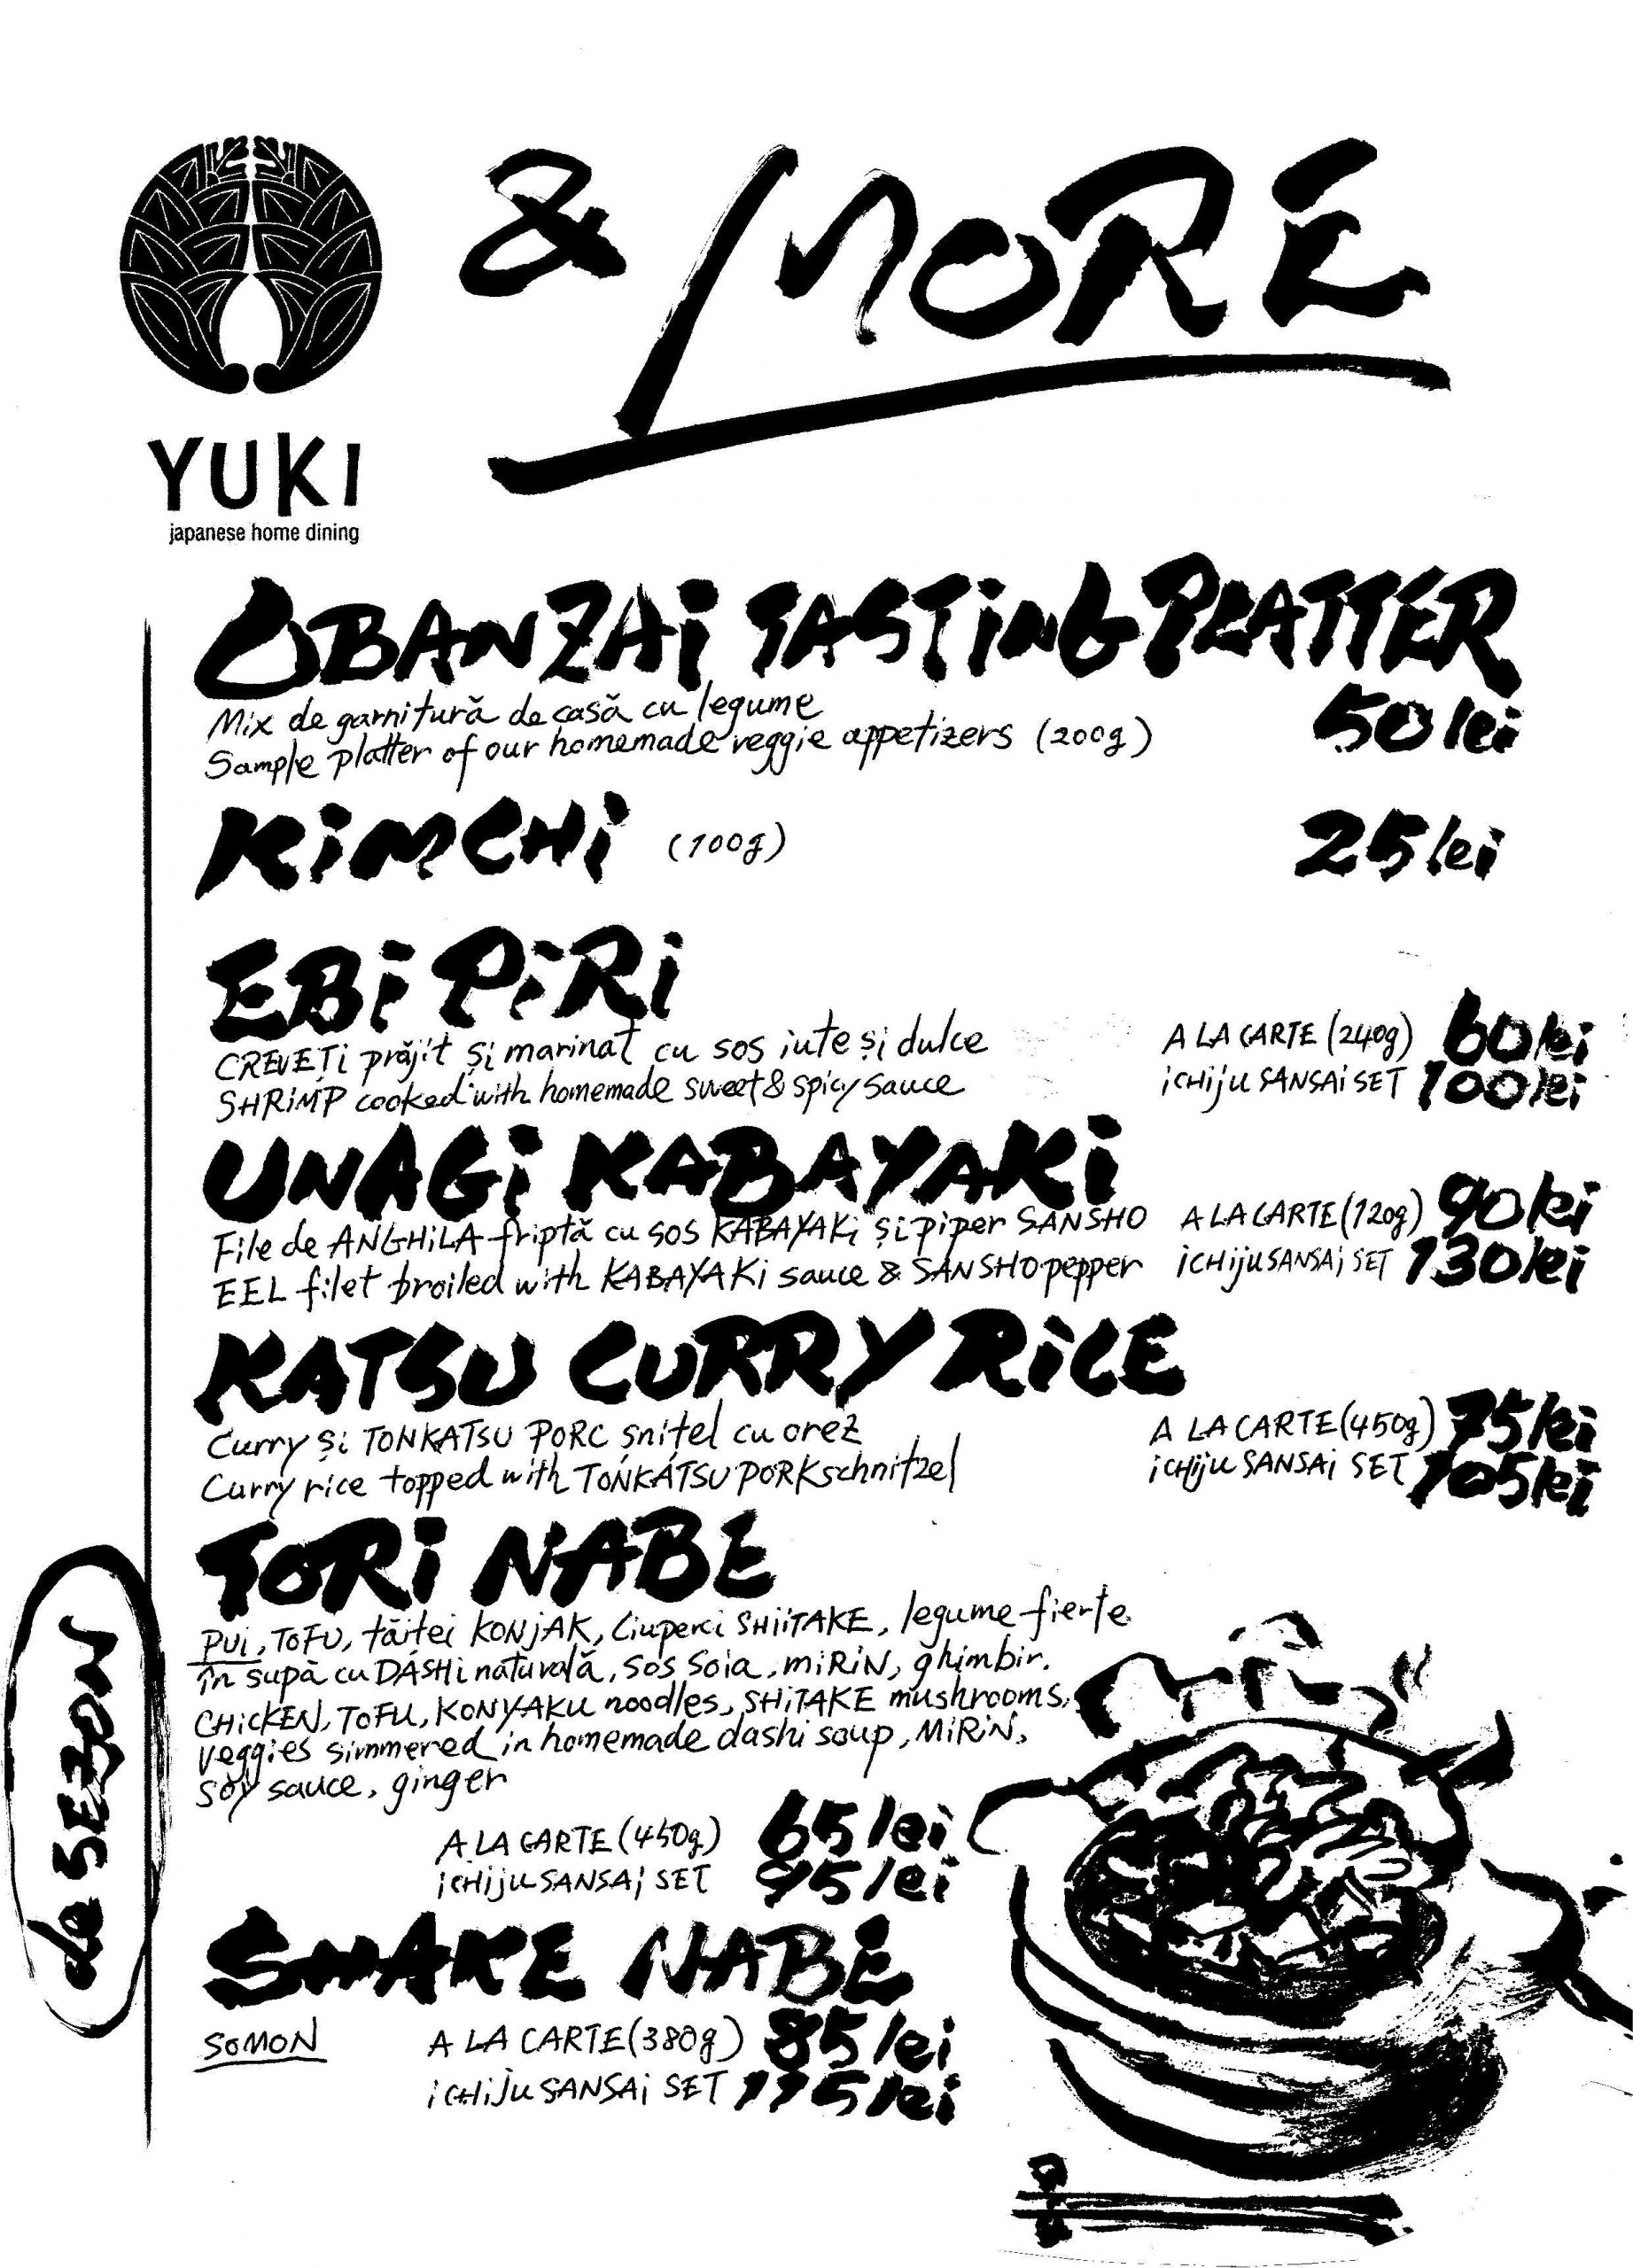 & MORE
YUKI
japanese home dining
OBANZAi TASTiNG PLATTER
Mix de garnitură de casă cu legume
Sample platter of our homemade veggie appetizers (200g)
50 lei
KiMCHi (100g) 25 lei
EBi PiRi
CREVEȚi prăjit și marinat cu sos iute și dulce
SHRiMP cooked with homemade sweet & spicy sauce
A LA CARTE (240g) 60 lei
iCHiju SANSAi SET 100 lei
UNAGi KABAYAKi
File de ANGHiLA friptă cu sos KABAYAKi și piper SANSHO
EEL filet broiled with KABAYAKi sauce & SANSHO pepper
A LA CARTE (120g) 90 lei
iCHiju SANSAi SET 130 lei
KATSU CURRY RiCE
Curry și TONKATSU PORC șnițel cu orez
Curry rice topped with TONKATSU PORK schnitzel
A LA CARTE (450g) 75 lei
iCHiju SANSAi SET 105 lei
de SEZON
TORi NABE
PUi, TOFU, tăiței KONjAK, Ciuperci SHiiTAKE, legume fierte
în supă cu DASHi naturală, sos soia, MiRiN, ghimbir.
CHiCKEN, TOFU, KONYAKU noodles, SHiTAKE mushrooms,
veggies simmered in homemade dashi soup, MiRiN,
soy sauce, ginger
A LA CARTE (450g) 65 lei
iCHiju SANSAi SET 95 lei
SHAKE NABE
SOMON
A LA CARTE (380g) 85 lei
iCHiju SANSAi SET 115 lei